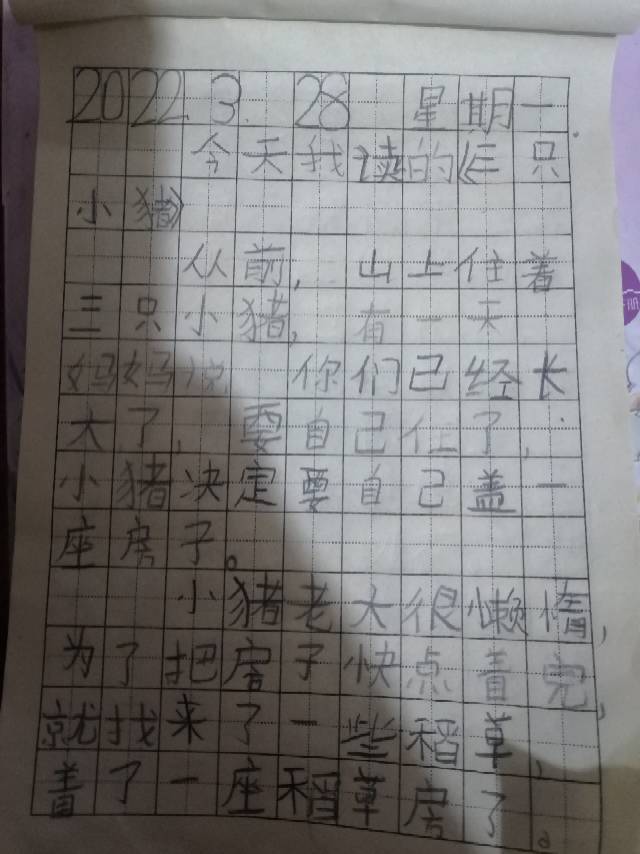 2022.3.28 星期一
今天我读的《三只
小猪》
从前，山上住着
三只小猪，有一天
妈妈说 你们已经长
大了，要自己住了，
小猪决定要自己盖一
座房子。
小猪老大很懒惰，
为了把房子快点着完，
就找来了一些稻草，
着了一座稻草房了。